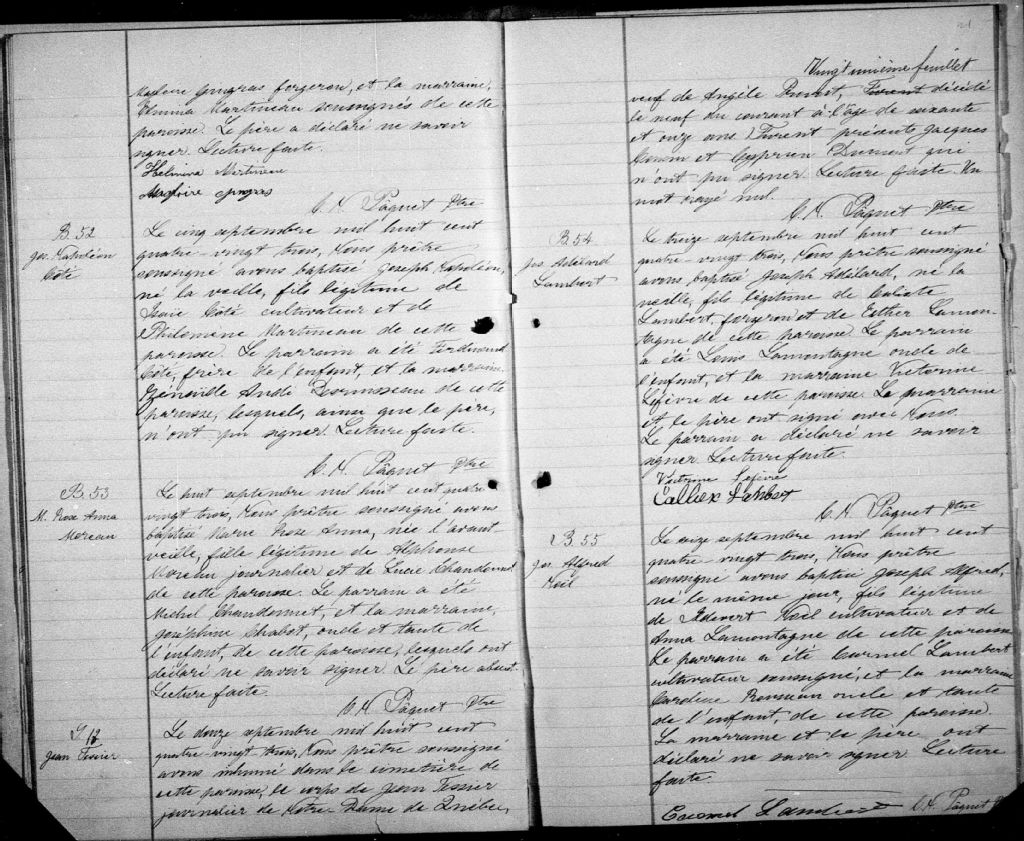 Magloire Gingras forgeron, et la marraine,
Helmina Martineau soussignés de cette
paroisse. Le père a déclaré ne savoir
signer. Lecture faite.
Helmina Martineau
Magloire gingras
C. H. Pâquet Ptre
B. 52
Jos. Napoléon
Coté
Le cinq septembre mil huit cent
quatre-vingt trois, Nous prêtre
soussigné avons baptisé Joseph Napoléon,
né la veille, fils légitime de
Isaie Coté cultivateur et de
Philomène Martineau de cette
paroisse. Le parrain a été Ferdinand
Coté, frère de l'enfant, et la marraine
André Bonnasseau de cette
paroisse, lesquels, ainsi que le père,
n'ont pu signer. Lecture faite.
C. H. Pâquet Ptre
B. 53
M. Rose Anna
Moreau
Le huit septembre mil huit cent quatre
vingt trois, Nous prêtre soussigné avons
baptisé Marie Rose Anna, née l'avant
veille, fille légitime de Alphonse
Moreau journalier et de Lucie Chandonnet
de cette paroisse. Le parrain a été
Michel Chandonnet, et la marraine,
Joséphine Chabot, oncle et tante de
l'enfant, de cette paroisse, lesquels ont
déclaré ne savoir signer. Le père absent.
Lecture faite.
C. H. Pâquet Ptre
S. 12
Jean Tessier
Le douze septembre mil huit cent
quatre-vingt trois, Nous prêtre soussigné
avons inhumé dans le cimetière de
cette paroisse, le corps de Jean Tessier
journalier de Notre-Dame de Québec,
21
Vingt unième feuillet
veuf de Angèle Drouet, Furent décédé
le neuf du courant à l'âge de soixante
et onze ans. Furent présents Jacques
et Cyprien Dumont qui
n'ont pu signer. Lecture faite. Un
mot rayé nul.
C. H. Pâquet Ptre
B. 54
Jos. Adélard
Lambert
Le treize septembre mil huit cent
quatre-vingt trois, Nous prêtre soussigné
avons baptisé Joseph Adélard, né la
veille, fils légitime de Calixte
Lambert, forgeron et de Esther Lamon-
tagne de cette paroisse. Le parrain
a été Louis Lamontagne oncle de
l'enfant, et la marraine Victorine
Lefèvre de cette paroisse. La marraine
et le père ont signé avec Nous.
Le parrain a déclaré ne savoir
signer. Lecture faite.
Victorine Lefèvre
Callixe Lambert
C. H. Pâquet Ptre
B. 55
Jos. Alfred
Noël
Le seize septembre mil huit cent
quatre vingt trois, Nous prêtre
soussigné avons baptisé Joseph Alfred,
né le même jour, fils légitime
de Edevert Noël cultivateur et de
Anna Lamontagne de cette paroisse.
Le parrain a été Carmel Lambert
cultivateur soussigné, et la marraine
Caroline Rousseau oncle et tante
de l'enfant, de cette paroisse.
La marraine et le père ont
déclaré ne savoir signer Lecture
faite
C. H. Pâquet